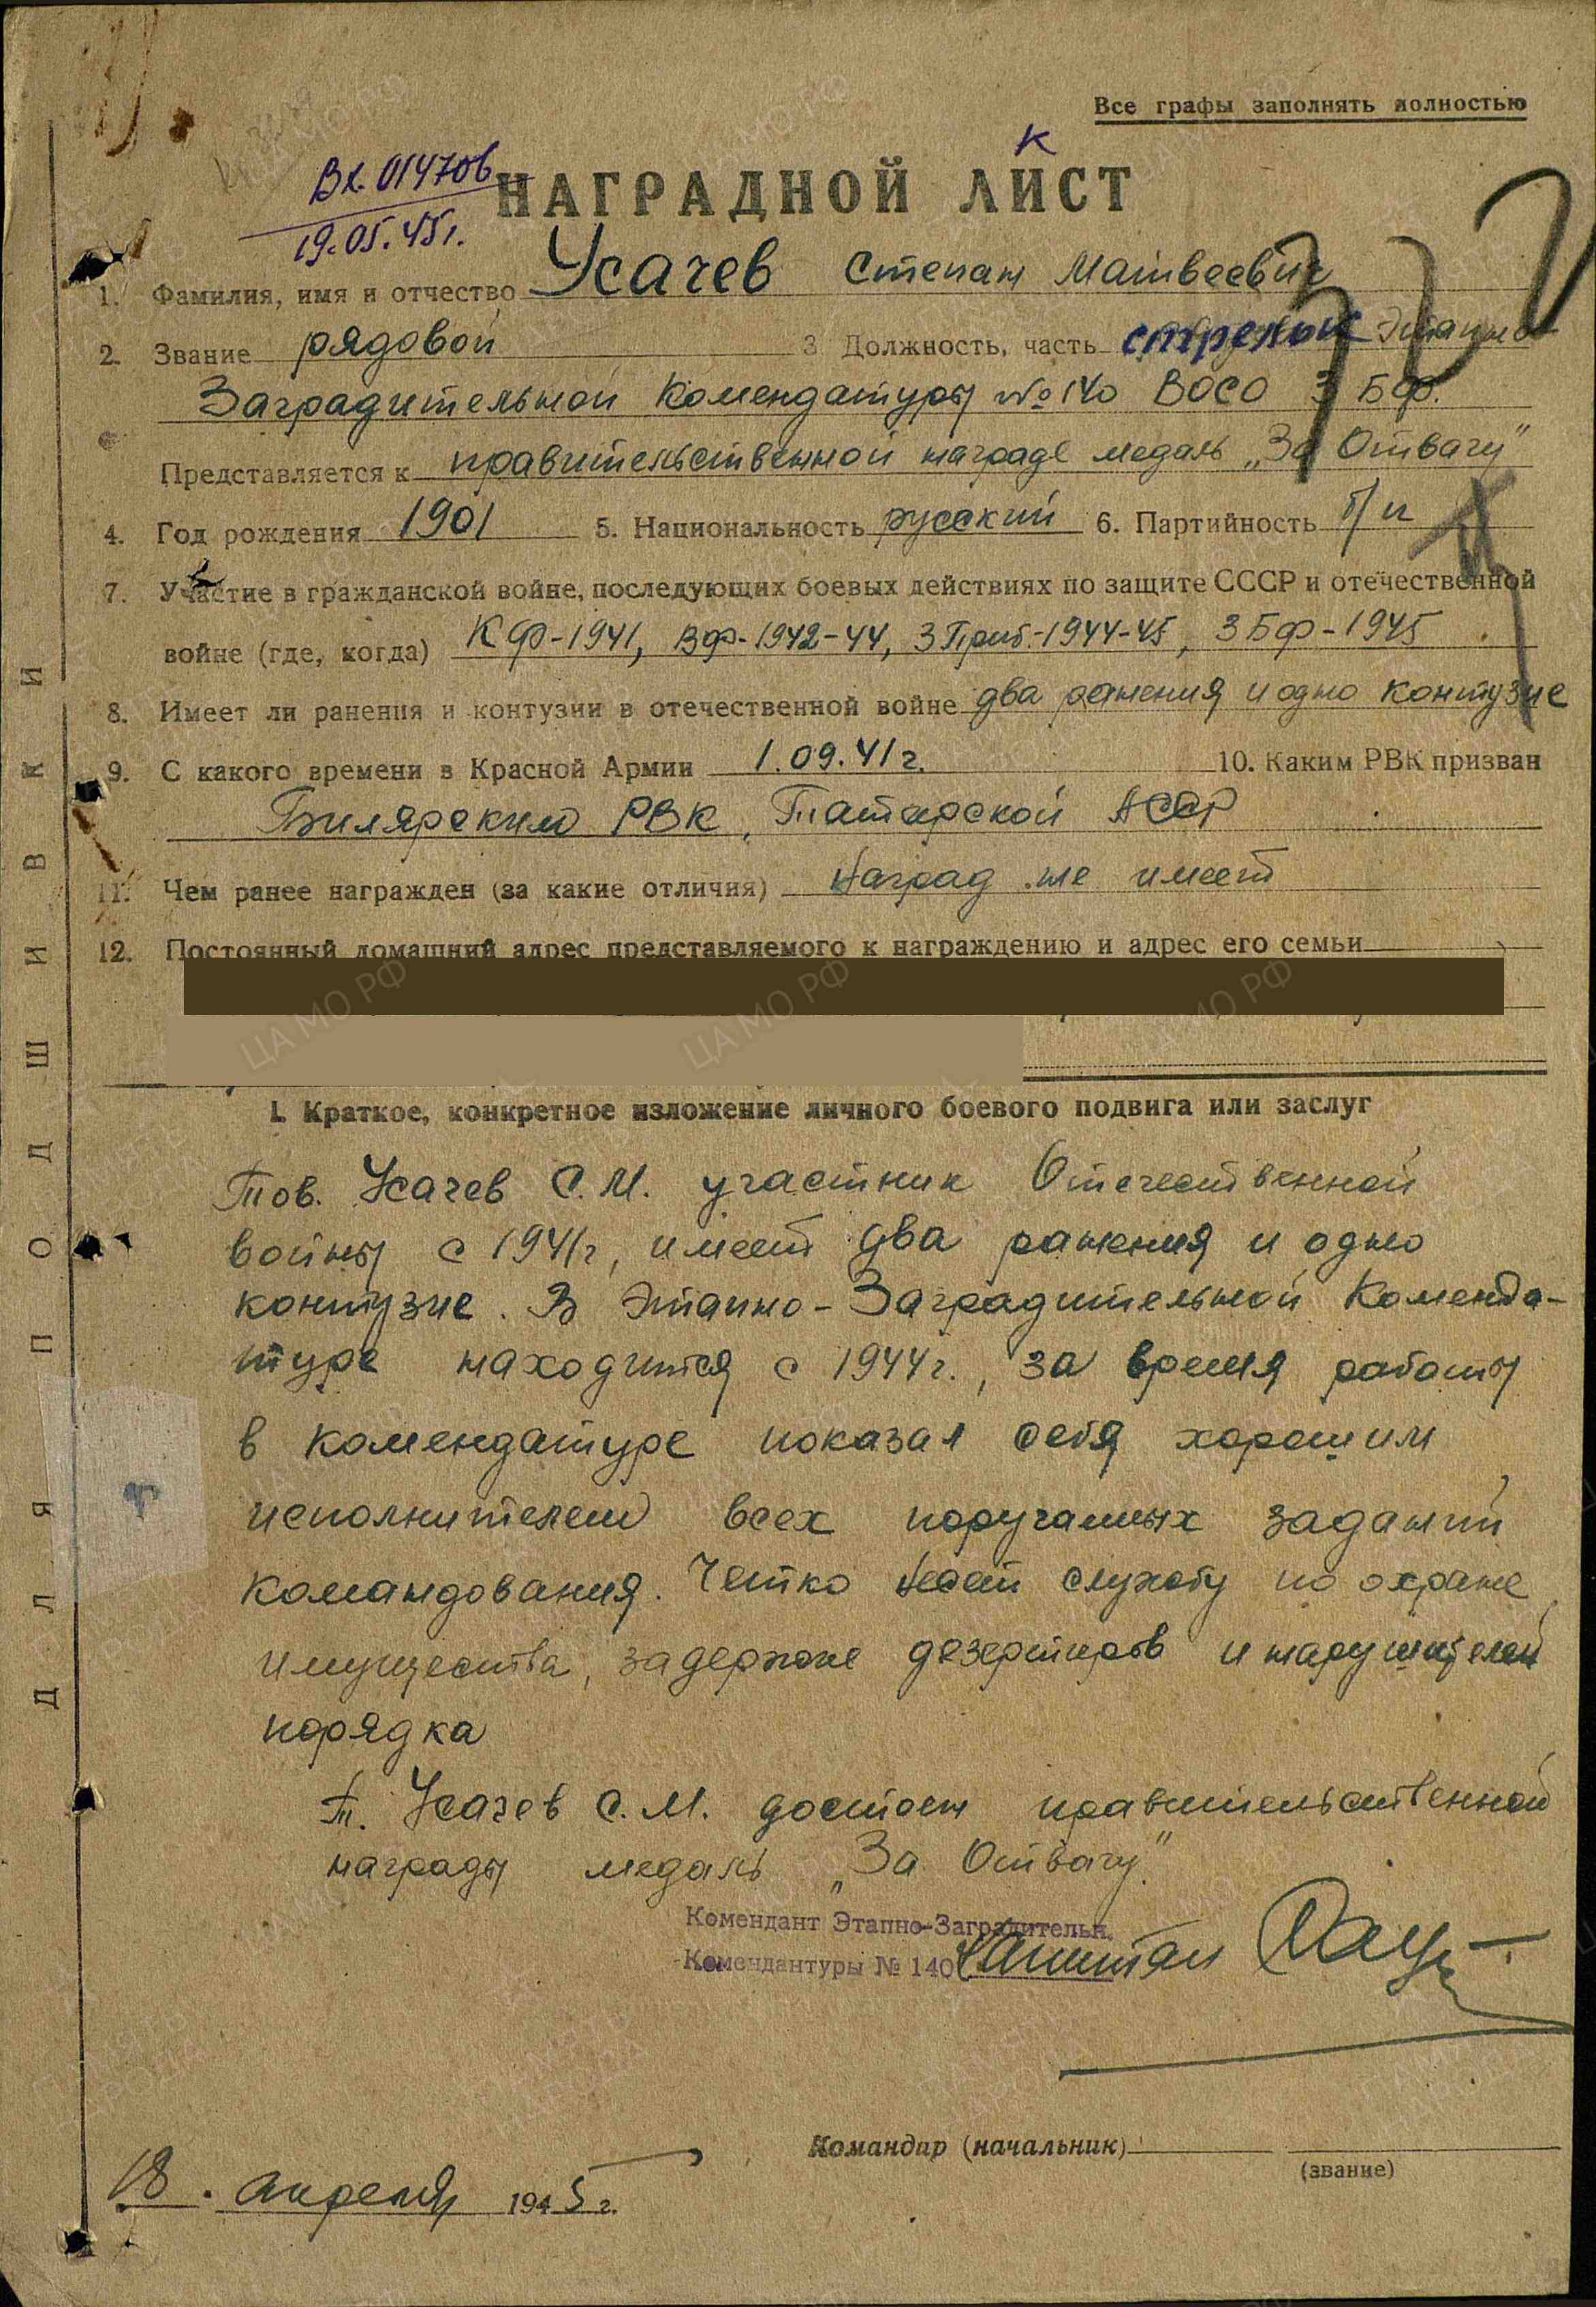 Все графы заполнять полностью
К
Вх. 014706
19.05.45г.
НАГРАДНОЙ ЛИСТ
1. Фамилия, имя и отчество Усачев Степан Матвеевич
2. Звание рядовой 3 Должность, часть стрелок Этапно
Заградительной Комендатуры №140 ВОСО 3 Бф.
Представляется к правительственной награде медаль „За Отвагу"
4. Год рождения 1901 5. Национальность русский 6. Партийность б/п
7. Участие в гражданской войне, последующих боевых действиях по защите СССР и отечественной
войне (где, когда) КФ-1941, ВФ-1942-44, 3 Приб.-1944-45, 3 БФ-1945
8. Имеет ли ранения и контузии в отечественной войне два ранения и одно контузие
9. С какого времени в Красной Армии 1.09.41г. 10. Каким РВК призван
Билярским РВК, Татарской АССР
11. Чем ранее награжден (за какие отличия) Наград не имеет
12. Постоянный домашний адрес представляемого к награждению и адрес его семьи
I. Краткое, конкретное изложение личного боевого подвига или заслуг
Тов. Усачев С.М. участник Отечественной
войны с 1941г, имеет два ранения и одно
контузие. В Этапно-Заградительной Коменда-
туре находится с 1944г., за время работы
в комендатуре показал себя хорошим
исполнителем всех поручаных заданий
командования. Четко несет службу по охране
имущества, задержке дезертиров и нарушителей
порядка
Т. Усачев С.М. достоен правительственной
награды медаль „За Отвагу."
Комендант Этапно-Заградительн.
Комендантуры № 140 Капитан
Командир (начальник)
(звание)
18. апреля 1945 г.
ДЛЯ ПОДШИВКИ